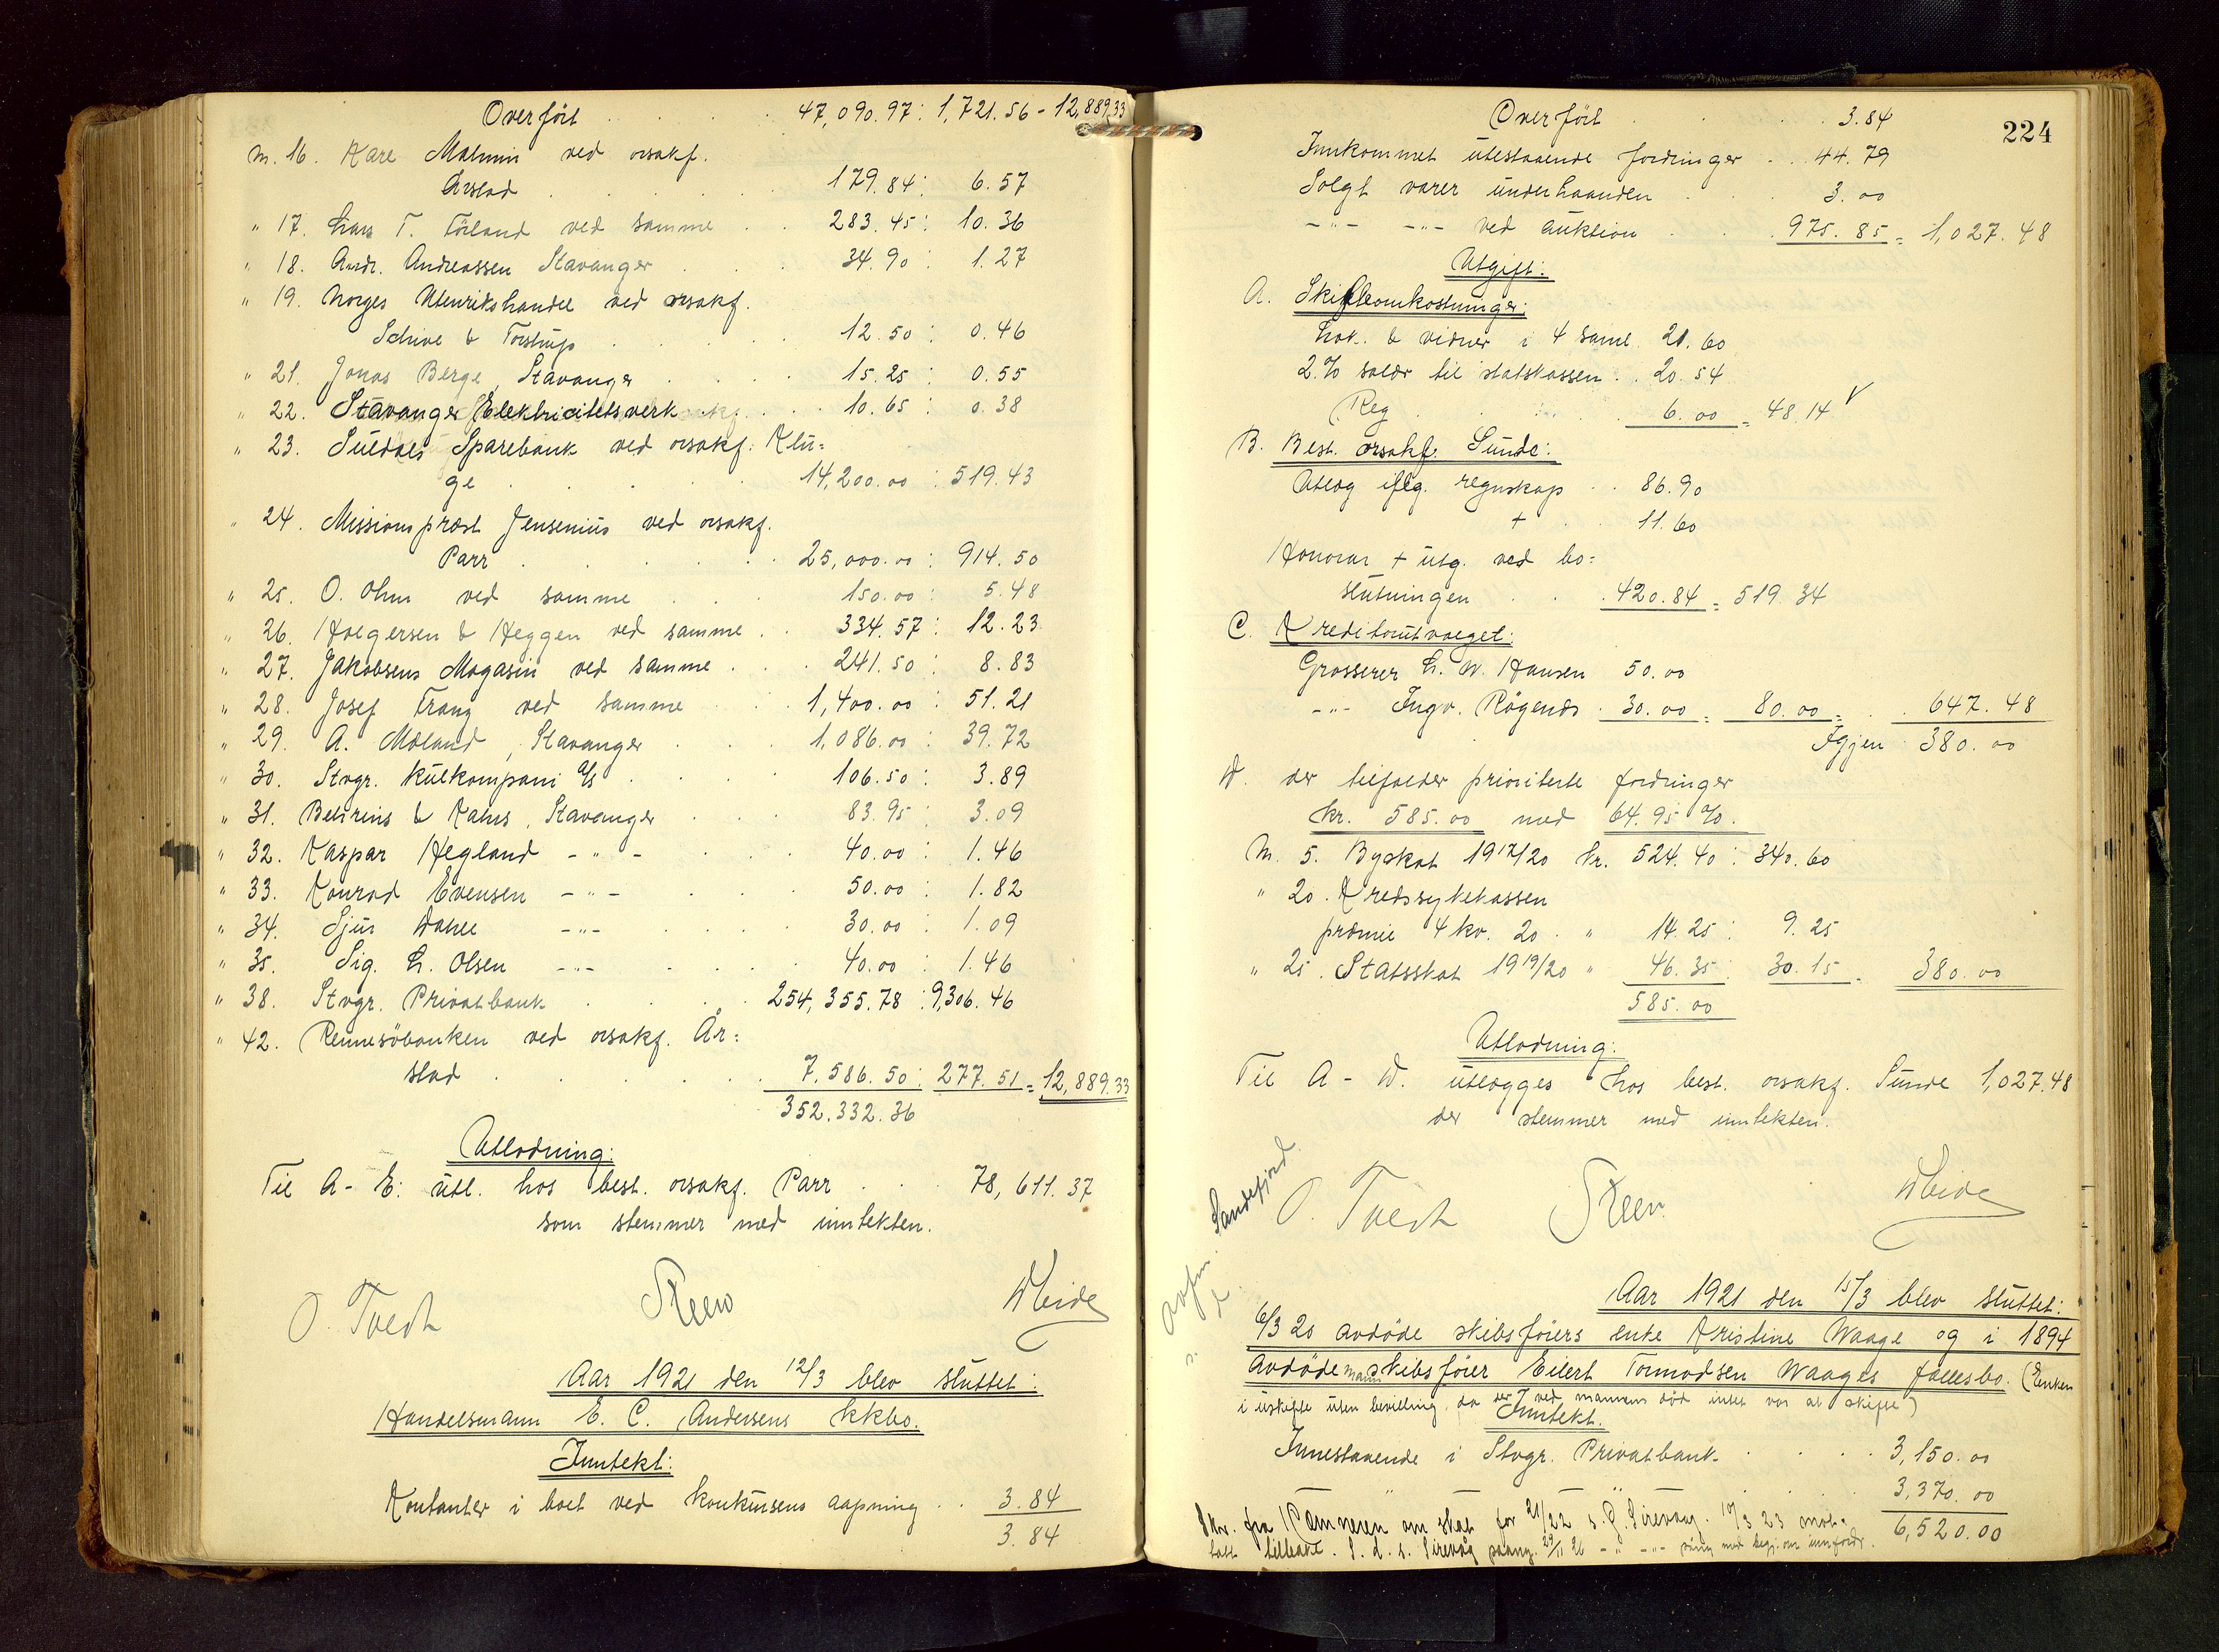 Overført . . . . 47,090.97 : 1,721.56 - 12,889.33
M. 16. Kare Malmin ved orsakf.
Arstad . . . . 179.84 : 6.57
" 17. Lars T. Törland ved samme . . 283.45 : 10.36
" 18. Andr. Andreassen Stavanger . . 34.90 : 1.27
" 19. Norges Utenrikshandel ved orsakf.
Schive & Torstrup . . . . 12.50 : 0.46
" 21. Jonas Berge, Stavanger . . . 15.25 : 0.55
" 22. Stavanger Elektricitetsverk . . . 10.65 : 0.38
" 23. Suldals Sparebank ved orsakf. Klu=
ge . . . . 14,200.00 : 519.43
" 24. Missionsprest Jensenius ved orsakf.
Parr . . . . 25,000.00 : 914.50
" 25. O. Ohm ved samme . . . 150.00 : 5.48
" 26. Holgersen & Heggen ved samme . . 334.57 : 12.23
" 27. Jakobsens Magasin ved samme . . . 241.50 : 8.83
" 28. Josef Franz ved samme . . . 1,400.00 : 51.21
" 29. A. Mæland, Stavanger . . . 1,086.00 : 39.72
" 30. Stvgr. Kulkompani A/S . . . . 106.50 : 3.89
" 31. Behrens & Kahrs, Stavanger . . . 83.95 : 3.09
" 32. Kaspar Hegland - " - . . . 40.00 : 1.46
" 33. Konrad Evensen - " - . . . 50.00 : 1.82
" 34. Sjur Dahle - " - . . . . 30.00 : 1.09
" 35. Sig. L. Olsen - " - . . . . 40.00 : 1.46
" 38. Stvgr. Privatbank . . . . 254,355.78 : 9,306.46
" 42. Rennesöbanken ved orsakf. År=
stad . . . . . 7,586.50 : 277.51 = 12,889.33
352.332.36
Utlodning:
Til A - E: utl. hos best. orsakf. Parr . . . 78,611.37
som stemmer med inntekten.
O. Tvedt Steen Weide
Aar 1921 den 12/3 blev sluttet:
Handelsmann E. C. Andersens kkbo.
Inntekt:
Kontanter i boet ved konkursens aapning . . 3.84
3.84
224
Overført . . . . 3.84
Innkommet utestaaende fordringer . . 44.79
Solgt varer underhaanden . . . 3.00
-"- -"- ved auktion . . . 975.85 = 1,027.48
Utgift:
A. Skifteomkostninger:
Lok. & vidner i 4 saml. 21.60
2.% salær til statskassen . . 20.54
Reg . . . . 6.00 = 48.14 V
B. Best. orsakf. Sunde:
Utlæg iflg. regnskap . . 86.90
+ . . 11.60
Honorar + utg. ved bo=
slutningen . . . 420.84 = 519.34
C. Kreditorutvalget:
Grosserer L. W. Hansen 50.00
-"- Ingv. Rögenes . 30.00 = 80.00 = . . 647.48
Igjen 380.00
D. der tilfalder prioriterte fordringer
kr. 585.00 med 64.95 %.
M. 5. Byskat 1917/20 kr. 524.40 : 340.60
" 20. Kredssykekassen
præmie 4 kv. 20 . " 14.25 : 9.25
" 25. Statsskat 1919/20 " 46.35 : 30.15 = 380.00
585.00
Utlodning:
Til A - D. utlægges hos best. orsakf. Sunde 1,027.48
der stemmer med inntekten.
O. Tvedt Steen Weide
Sandefjord
Aar 1921 den 15/3 blev sluttet:
6/3 20 avdöde skibsföiers enke Kristine Waage og i 1894
avdöde mann skibsföier Eilert Tormodsen Waages fællesbo. (Enken
i uskifte uten bevilling, da der ved mannens död intet var at skifte)
Inntekt.
Innestaaende i Stvgr. Privatbank . . . . 3,150.00
" " . . . . 3,370.00
6,520.00
Skr. fra Kæmneren om skat for 21/22 s. G. Sirevaag. 10/3 23 mot=
tatt tilbake. S. d. s. Sirevåg paany. 29/11 26 - " - -"- med begj. om innfordr.